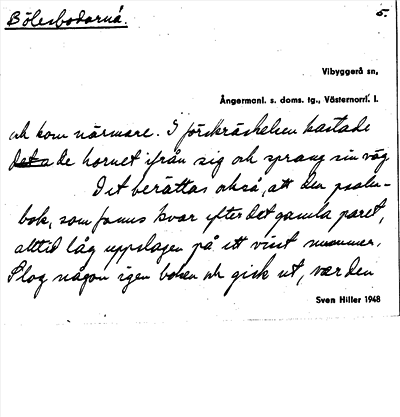 Bölesbodarna.
5.
Vibyggerå sn,
Ångermanl. s. doms. tg., Västernorrl. l.
och kom närmare. I förskräckelsen kastade
de hornet ifrån sig och sprang sin väg
Det berättas också, att den psalm-
bok, som fanns kvar efter det gamla paret,
alltid låg uppslagen på ett visst nummer.
Slog någon igen boken och gick ut, var den
Sven Hiller 1948